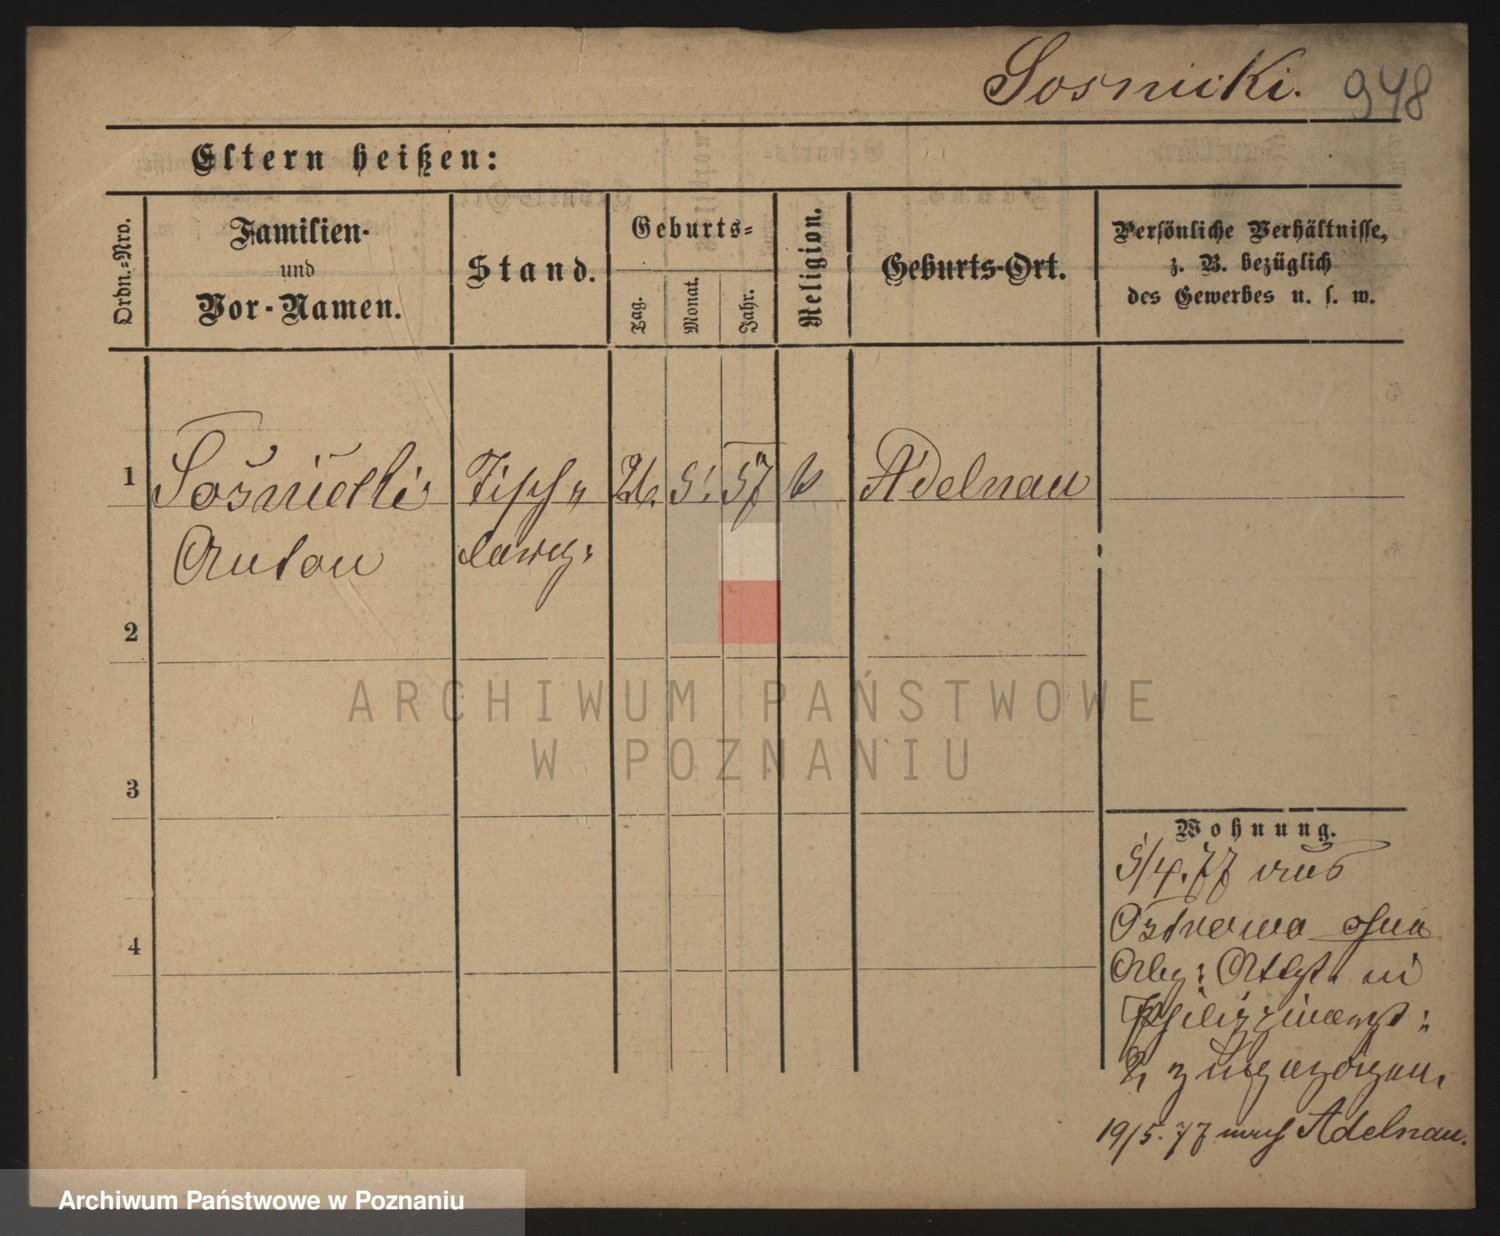 Sosnicki. 948
Eltern heißen:
Ordn.-Nro.
Familien-
und
Vor-Namen.
Stand.
Geburts-
Tag.
Monat.
Jahr.
Religion.
Geburts-Ort.
Persönliche Verhältnisse,
z. B. bezüglich
des Gewerbes u. s. w.
1
Sosnicki
Tisch
5. 57
Adelnau
Anton
2
3
4
Wohnung.
5/4. 77 aus
Ostrowo ohne
Abg: Attest in
2
19/5. 77 nach Adelnau.
ARCHIWUM PAŃSTWOWE
W POZNANIU
Archiwum Państwowe w Poznaniu